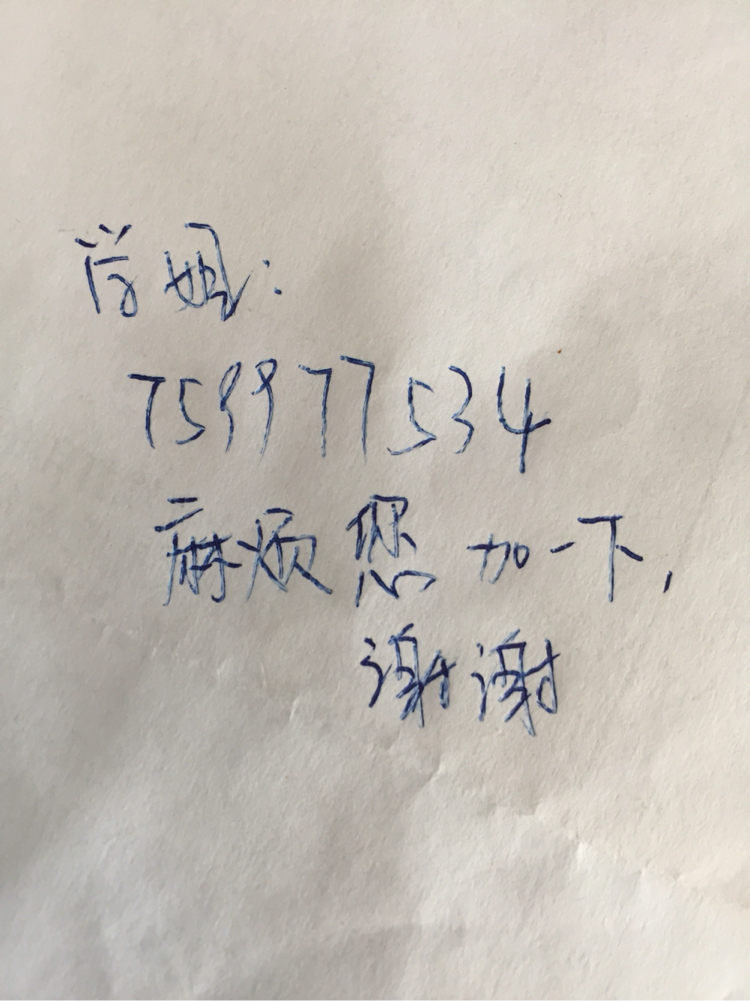 学姐:
759977534
麻烦您加一下,
谢谢